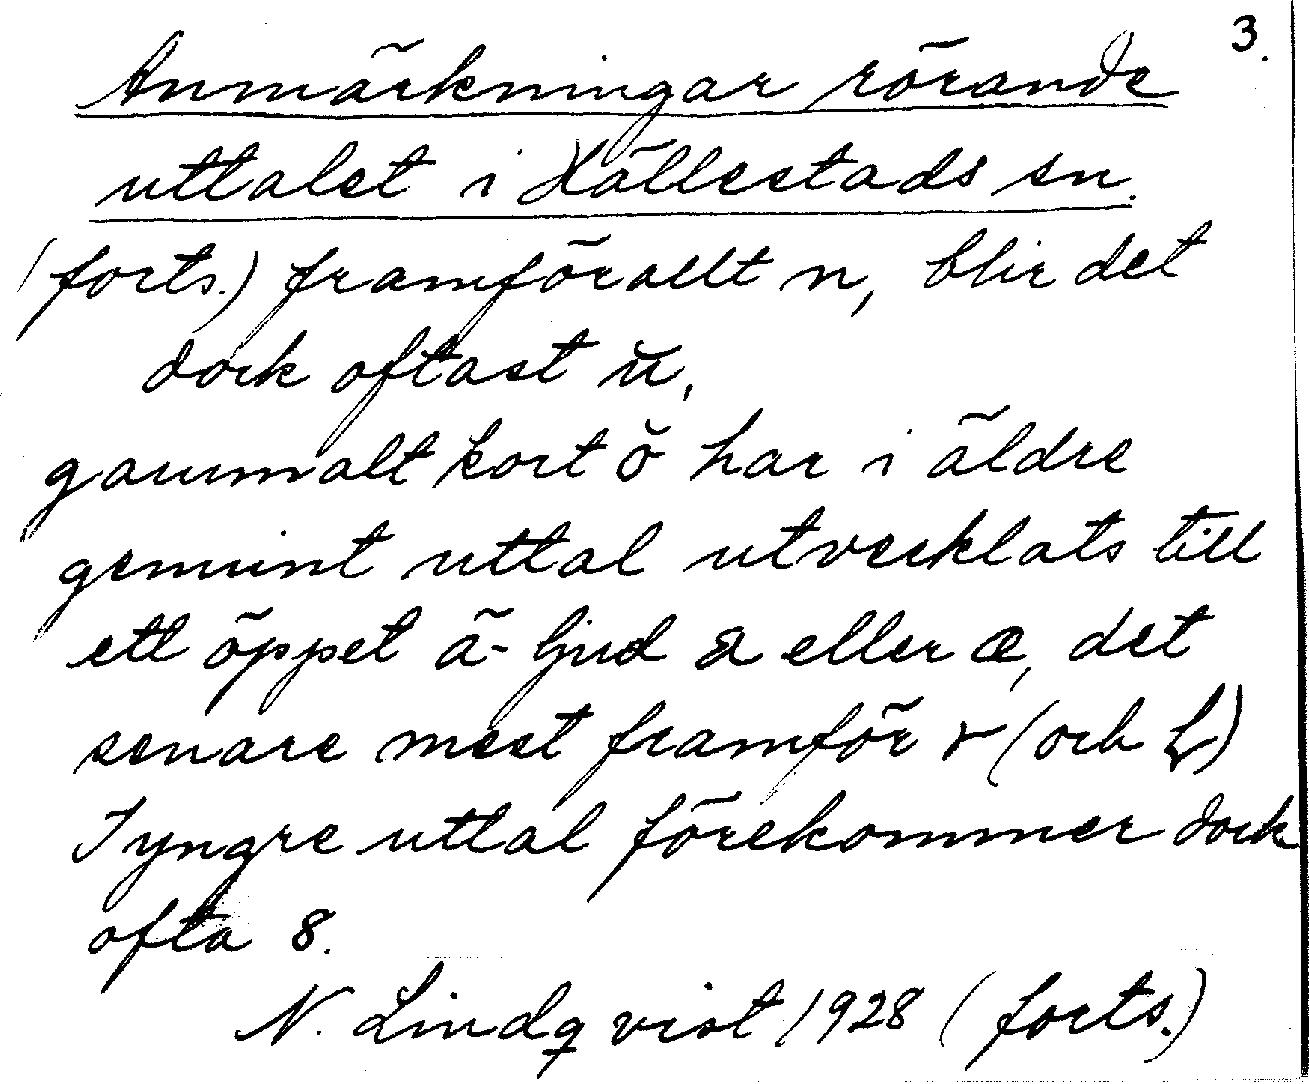 3.
Anmärkningar rörande
uttalet i Hällestads sn.
(forts.) framförallt n, blir det
dock oftast ŭ,
gammalt kort ŏ har i äldre
gemint uttal utvecklats till
ett öppet ä-ljud a eller æ, det
senare mest framför r (och
I yngre uttal förekommer dock
ofta 8.
N. Lindqvist 1928 (forts.)